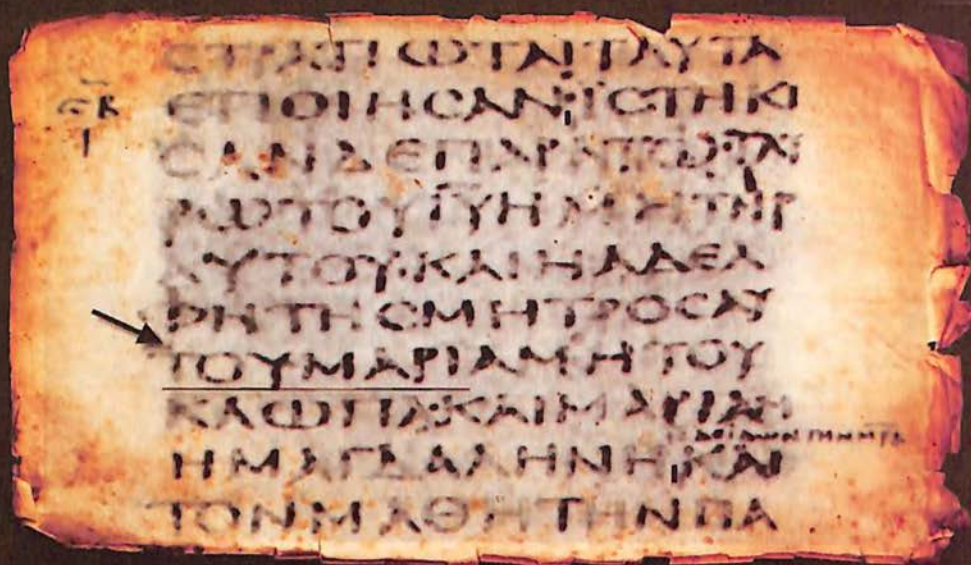 ϹΤΡΑΤΙΩΤΑΙΤΑΥΤΑ
ΕΠΟΙΗϹΑΝ·ΙϹΤΗΚΙ
ϹΑΝΔΕΠΑΡΑΤΩϹΤΑΥ
ΡΩΤΟΥΙ̅Υ̅ΗΜΗΤΗΡ
ΑΥΤΟΥ·ΚΑΙΗΑΔΕΛ
ΦΗΤΗϹΜΗΤΡΟϹΑΥ
ΤΟΥΜΑΡΙΑΜΗΤΟΥ
ΚΛΩΠΑ·ΚΑΙΜΑΡΙΑΜ
ΗΜΑΓΔΑΛΗΝΗΚΑΙ
ΤΟΝΜΑΘΗΤΗΝΠΑ